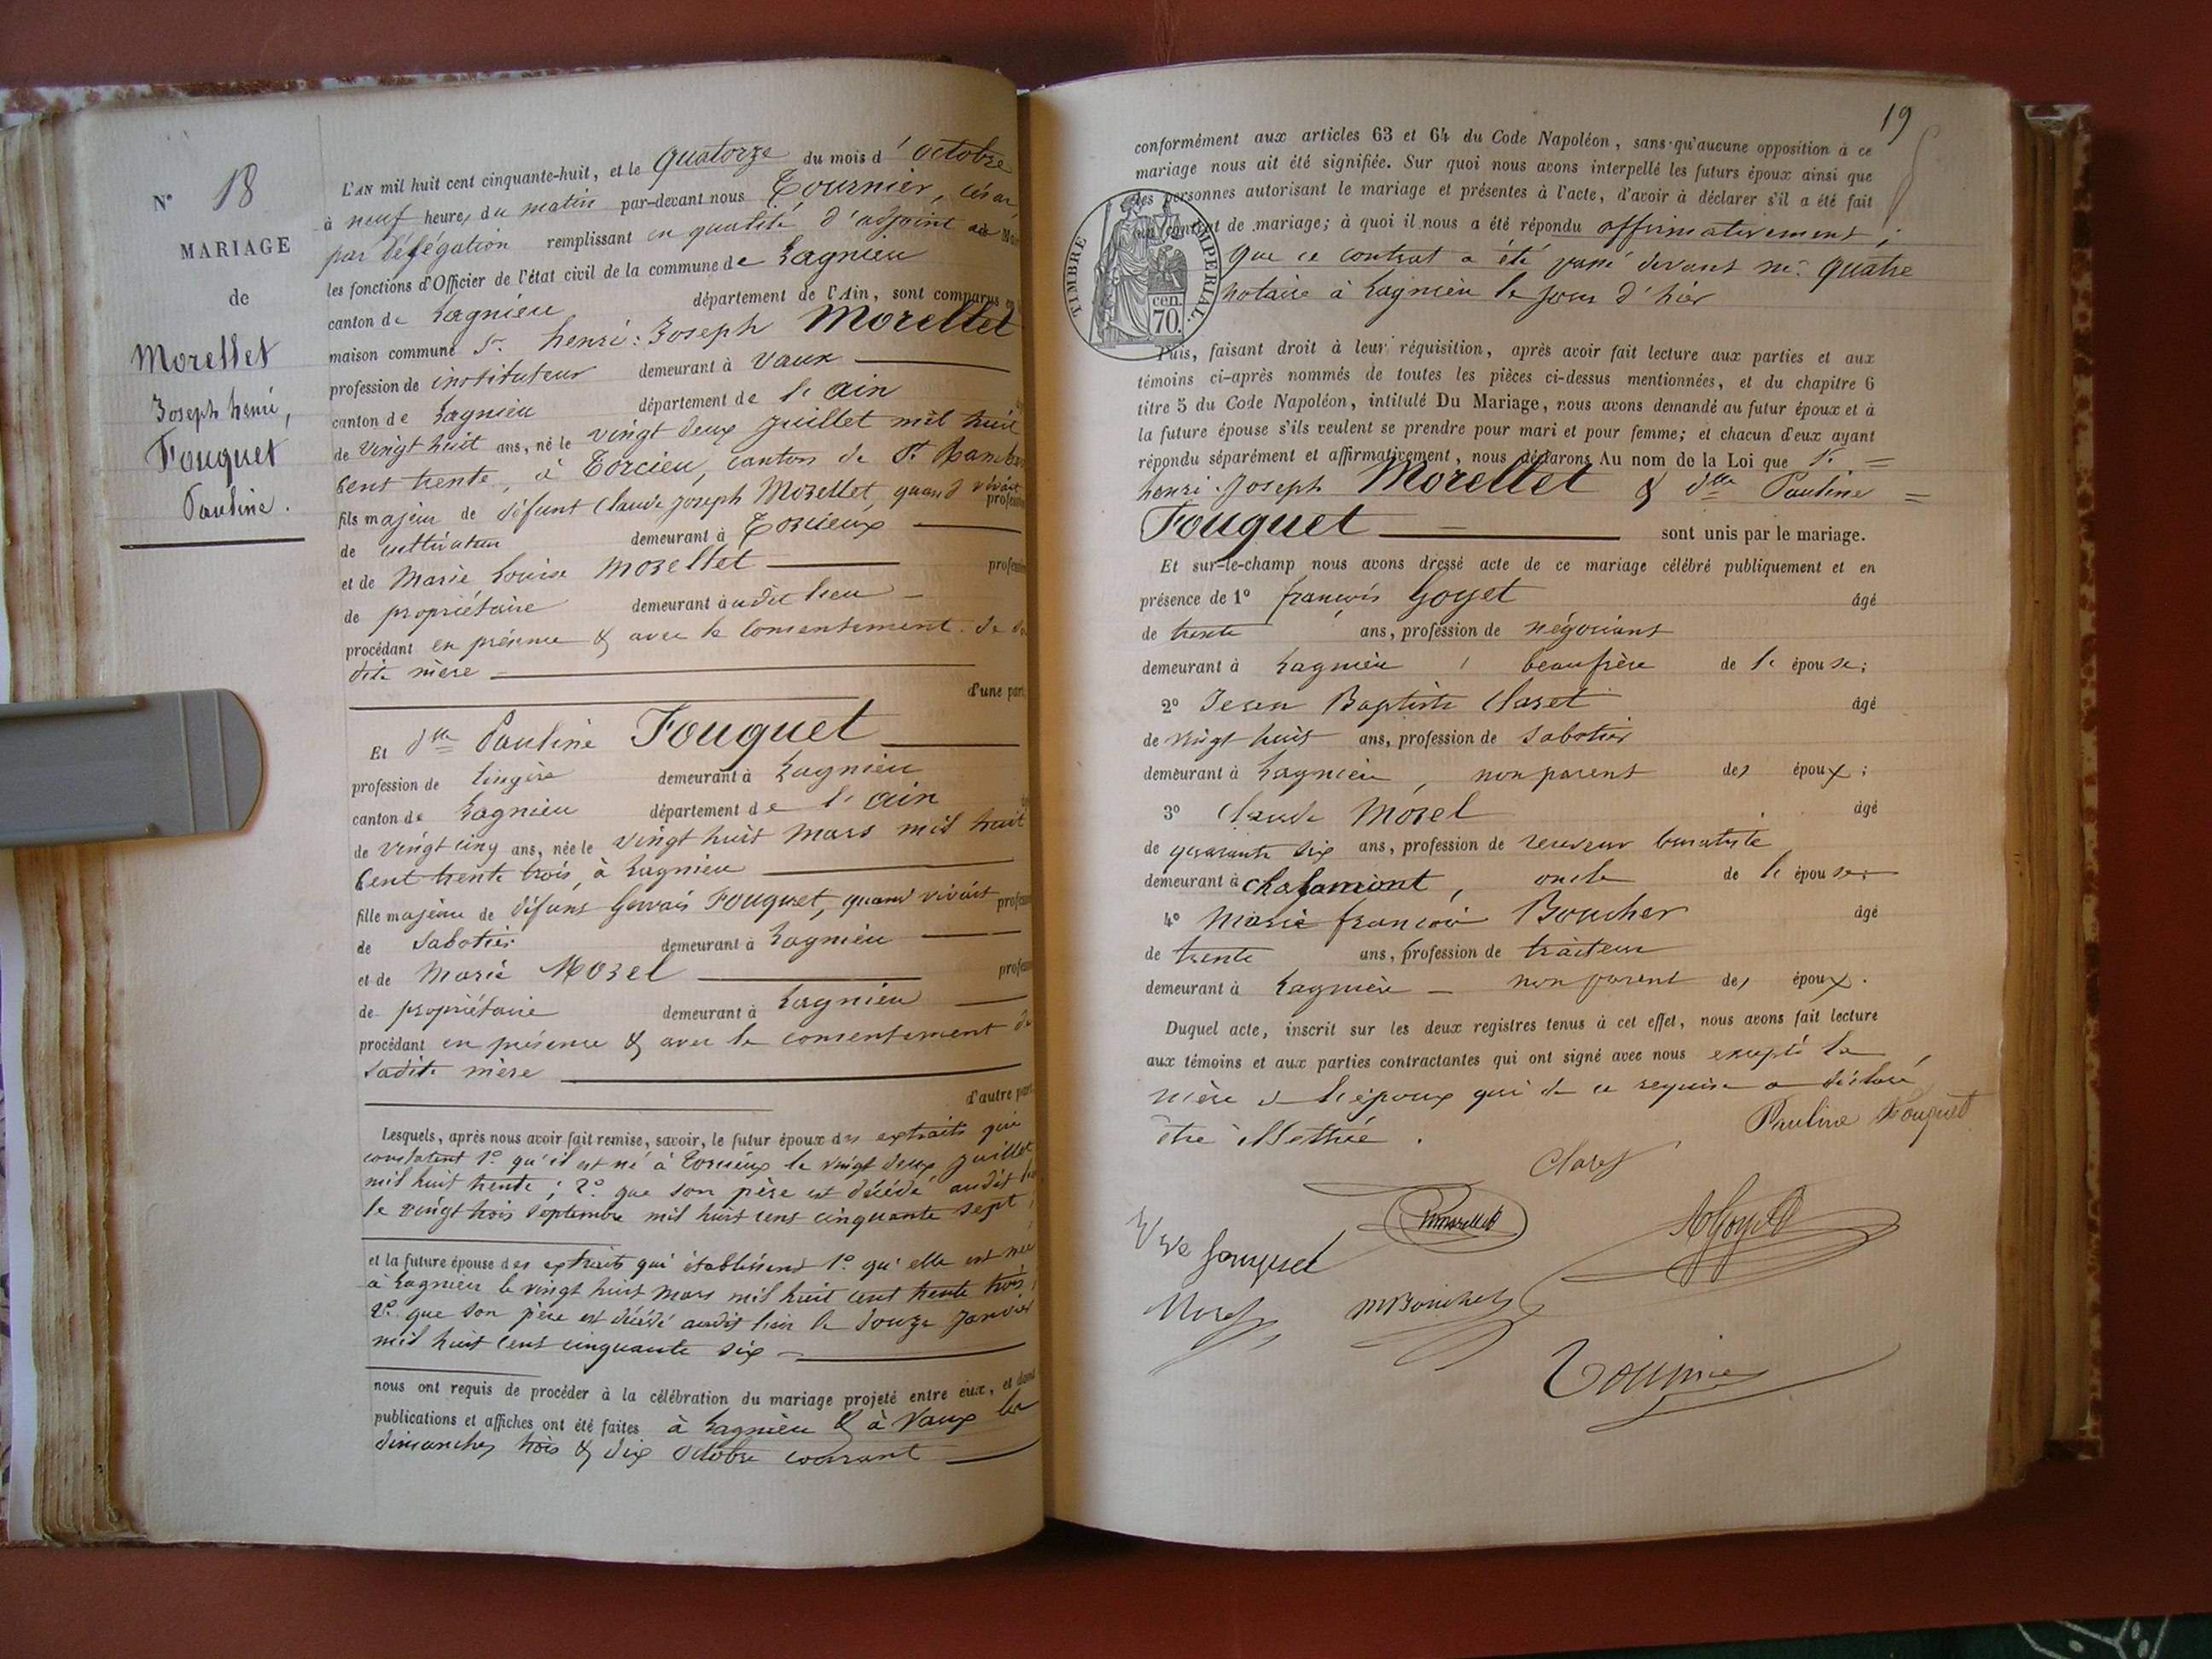 N° 18
MARIAGE
de
Morellet
Joseph henri,
Fouquet
Pauline.
L'AN mil huit cent cinquante-huit, et le quatorze du mois d'octobre
à neuf heures du matin par-devant nous Tournier, César,
par délégation remplissant en qualité d'adjoint au
les fonctions d'Officier de l'état civil de la commune de Lagnieu
canton de Lagnieu département de l'Ain, sont comparus en
maison commune Sr. henri-Joseph Morellet
profession de instituteur demeurant à Vaux
canton de Lagnieu département de l'ain
de vingt huit ans, né le vingt deux juillet mil huit
cent trente, à Torcieu, canton de St. Rambert
fils majeur de défunt Claude Joseph Morellet, quand vivait
de cultivateur demeurant à Torcieux
et de Marie Louise Morellet
de propriétaire demeurant audit lieu
procédant en présence & avec le consentement de sa
dite mère
d'une part
Et dlle Pauline Fouquet
profession de lingère demeurant à Lagnieu
canton de Lagnieu département de l'ain
de vingt cinq ans, née le vingt huit mars mil huit
cent trente trois, à Lagnieu
fille majeure de défunt Gervais Fouquet, quand vivait
de sabotier demeurant à Lagnieu
et de Marie Morel
de propriétaire demeurant à Lagnieu
procédant en présence & avec le consentement de
sadite mère
d'autre part
Lesquels, après nous avoir fait remise, savoir, le futur époux des extraits qui
constatent 1° qu'il est né à Torcieux le vingt deux juillet
mil huit trente; 2° que son père est décédé audit lieu
le vingt trois septembre mil huit cent cinquante sept;
et la future épouse des extraits qui établissent 1° qu'elle est née
à Lagnieu le vingt huit mars mil huit cent trente trois;
2° que son père est décédé audit lieu le douze janvier
mil huit cent cinquante six
nous ont requis de procéder à la célébration du mariage projeté entre eux, et dont
publications et affiches ont été faites à Lagnieu & à Vaux les
dimanches trois & dix octobre courant
19
conformément aux articles 63 et 64 du Code Napoléon, sans qu'aucune opposition à ce
mariage nous ait été signifiée. Sur quoi nous avons interpellé les futurs époux ainsi que
les personnes autorisant le mariage et présentes à l'acte, d'avoir à déclarer s'il a été fait
un contrat de mariage; à quoi il nous a été répondu affirmativement;
que ce contrat a été passé devant me. quatre
notaire à Lagnieu le jour d'hier
TIMBRE IMPERIAL
cen.
70.
Puis, faisant droit à leur réquisition, après avoir fait lecture aux parties et aux
témoins ci-après nommés de toutes les pièces ci-dessus mentionnées, et du chapitre 6
titre 5 du Code Napoléon, intitulé Du Mariage, nous avons demandé au futur époux et à
la future épouse s'ils veulent se prendre pour mari et pour femme; et chacun d'eux ayant
répondu séparément et affirmativement, nous déclarons Au nom de la Loi que Sr.
henri-Joseph Morellet & dlle Pauline
Fouquet sont unis par le mariage.
Et sur-le-champ nous avons dressé acte de ce mariage célébré publiquement et en
présence de 1° françois Goyet âgé
de trente ans, profession de négociant
demeurant à Lagnieu, beaufrère de l'épouse;
2° Jean Baptiste Claret âgé
de vingt huit ans, profession de sabotier
demeurant à Lagnieu, non parent des époux;
3° Claude Morel âgé
de quarante six ans, profession de receveur buraliste
demeurant à chalamont, oncle de l'épouse;
4° Marie françois Boucher âgé
de trente ans, profession de traiteur
demeurant à Lagnieu - non parent des époux.
Duquel acte, inscrit sur les deux registres tenus à cet effet, nous avons fait lecture
aux témoins et aux parties contractantes qui ont signé avec nous excepté la
mère de l'époux qui de ce requise a déclaré
être illettrée.
Pauline Fouquet
Claret
Morellet
Goyet
Vve fouquet
Morel
MBoucher
Tournier